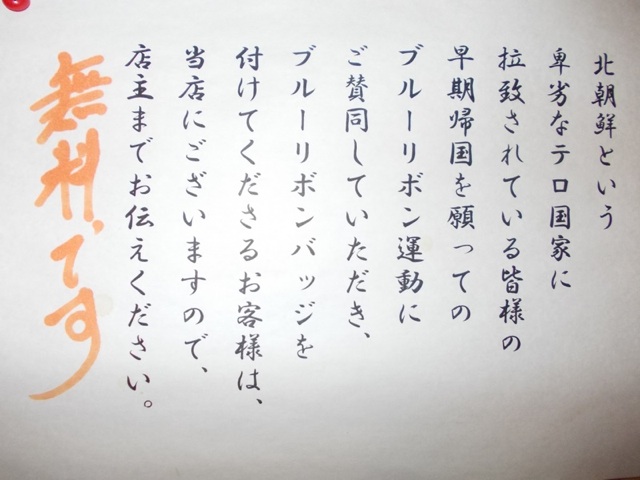 北朝鮮という
卑劣なテロ国家に
拉致されている皆様の
早期帰国を願っての
ブルーリボン運動に
ご賛同していただき、
ブルーリボンバッジを
付けてくださるお客様は、
当店にございますので、
店主までお伝えください。
無料です